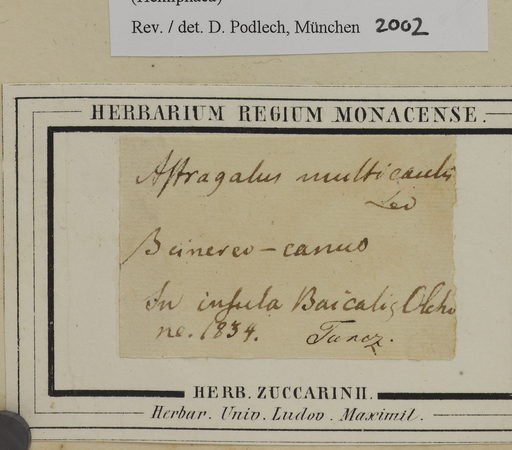 (Hemiphaca)
Rev. / det. D. Podlech, München 2002
HERBARIUM REGIUM MONACENSE.
Astragalus multicaulis
Led
B cinereo-canus
In insula Baicalis Olcho
ne. 1834. Turcz.
HERB. ZUCCARINII.
Herbar. Univ. Ludov. Maximil.